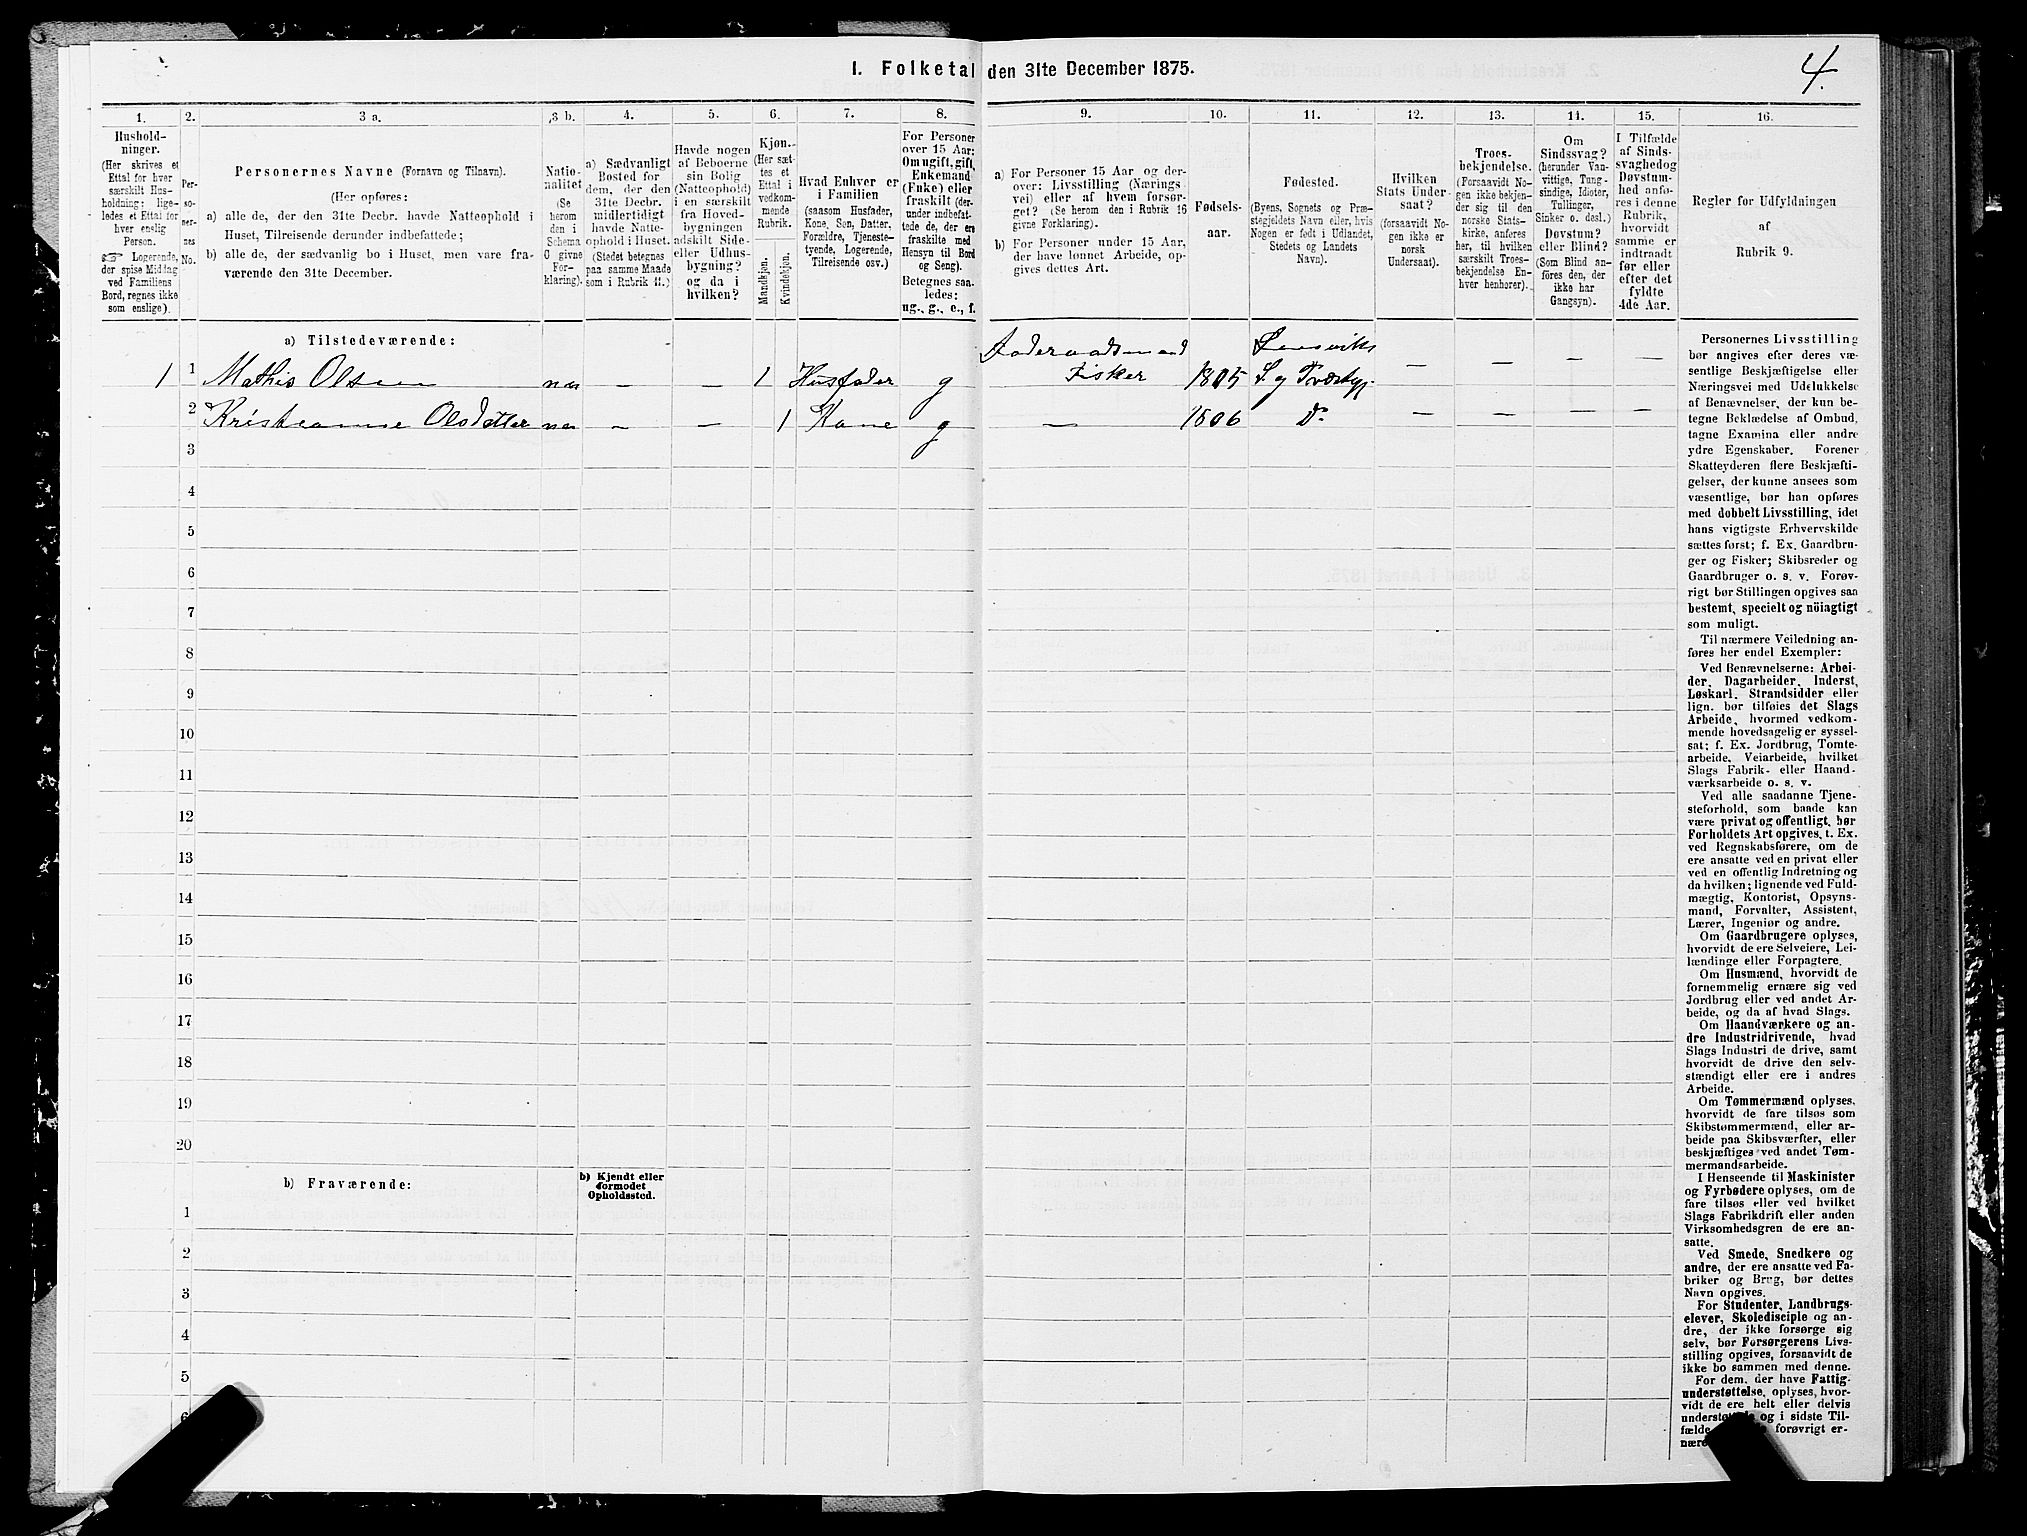 I. Folketal den 31te December 1875.
4.
1.
Hushold-
ninger.
(Her skrives et
Ettal for hver
særskilt Hus-
holdning; lige-
ledes et Ettal for
hver enslig
Person.
☞ Logerende,
der spise Middag
ved Familiens
Bord, regnes ikke
som enslige).
2.
Per-
so-
ner-
nes
No.
3 a.
Personernes Navne (Fornavn og Tilnavn).
(Her opføres:
a) alle de, der den 31te Decbr. havde Natteophold i
Huset, Tilreisende derunder indbefattede;
b) alle de, der sædvanlig bo i Huset, men vare fra-
værende den 31te December.
3 b.
Natio-
nalitet
(Se
herom
den i
Schema
C givne
For-
klaring).
4.
a) Sædvanligt
Bosted for
dem, der den
31te Decbr.
midlertidigt
havde Natte-
ophold i Huset.
(Stedet betegnes
paa samme Maade
som i Rubrik 11.)
5.
Havde nogen
af Beboerne
sin Bolig
(Natteophold)
i en særskilt
fra Hoved-
bygningen
adskilt Side-
eller Udhus-
bygning?
og da i
hvilken?
6.
Kjøn.
(Her sæt-
tes et
Ettal i
vedkom-
mende
Rubrik.
Mandkjøn.
Kvindekjøn.
7.
Hvad Enhver er
i Familien
(saasom Husfader,
Kone, Søn, Datter,
Forældre, Tjeneste-
tyende, Logerende,
Tilreisende osv.)
8.
For Personer
over 15 Aar:
Om ugift, gift,
Enkemand
(Enke) eller
fraskilt (der-
under indbefat-
tede de, der ere
fraskilte med
Hensyn til Bord
og Seng).
Betegnes saa-
ledes:
ug., g., e., f.
9.
a) For Personer 15 Aar og der-
over: Livsstilling (Nærings-
vei) eller af hvem forsør-
get? (Se herom den i Rubrik 16
givne Forklaring).
b) For Personer under 15 Aar,
der have lønnet Arbeide, op-
gives dettes Art.
10.
Fødsels-
aar.
11.
Fødested.
(Byens, Sognets og Præ-
stegjeldets Navn eller, hvis
Nogen er født i Udlandet,
Stedets og Landets
Navn).
12.
Hvilken
Stats Under-
saat?
(forsaavidt No-
gen ikke er
norsk
Undersaat).
13.
Troes-
bekjendelse.
(Forsaavidt No-
gen ikke bekjen-
der sig til den
norske Stats-
kirke, anføres
her, til hvilken
særskilt Troes-
bekjendelse En-
hver henhører).
14.
Om
Sindssvag?
(herunder Van-
vittige, Tung-
sindige, Idioter,
Tullinger,
Sinker o. desl.)
Døvstum?
eller Blind?
(Som Blind an-
føres den, der
ikke har
Gangsyn).
15.
I Tilfælde
af Sinds-
svaghed og
Døvstum-
hed anfø-
res i denne
Rubrik,
hvorvidt
samme er
indtraadt
før eller
efter det
fyldte
4de Aar.
16.
Regler for Udfyldningen
af
Rubrik 9.
a) Tilstedeværende:
1 1 Mathis Olsen – – 1 Husfader g Fisker 1805 – – – –
2 Olsdatter – – 1 Kone g – 1806 Do – – – –
3
4
5
6
7
8
9
10
11
12
13
14
15
16
17
18
19
20
b) Fraværende:
b) Kjendt eller
formodet
Opholdssted.
1
2
3
4
5
6
Personernes Livsstilling
bør angives efter deres væ-
sentlige Beskjæftigelse eller
Næringsvei med Udelukkelse
af Benævnelser, der kun be-
tegne Beklædelse af Ombud,
tagne Examina eller andre
ydre Egenskaber. Forener
Skatteyderen flere Beskjæfti-
gelser, der kunne ansees som
væsentlige, bør han opføres
med dobbelt Livsstilling, idet
hans vigtigste Erhvervskilde
sættes først; f. Ex. Gaardbru-
ger og Fisker; Skibsreder og
Gaardbruger o. s. v. Forøv-
rigt bør Stillingen opgives saa
bestemt, specielt og nöiagtigt
som muligt.
Til nærmere Veiledning an-
føres her endel Exempler:
Ved Benævnelserne: Arbei-
der, Dagarbeider, Inderst,
Løskarl, Strandsidder eller
lign. bør tilføies det Slags
Arbeide, hvormed vedkom-
mende hovedsagelig er syssel-
sat; f. Ex. Jordbrug, Tomte-
arbeide, Veiarbeide, hvilket
Slags Fabrik- eller Haand-
værksarbeide o. s. v.
Ved alle saadanne Tjene-
steforhold, som baade kan
være privat og offentligt, bør
Forholdets Art opgives, t. Ex.
ved Regnskabsførere, om de
ere ansatte ved en privat eller
ved en offentlig Indretning og
da hvilken; lignende ved Fuld-
mægtig, Kontorist, Opsyns-
mand, Forvalter, Assistent,
Lærer, Ingeniør og andre.
Om Gaardbrugere oplyses,
hvorvidt de ere Selveiere, Lei-
lændinge eller Forpagtere.
Om Husmænd, hvorvidt de
fornemmelig ernære sig ved
Jordbrug eller ved andet Ar-
beide, og da af hvad Slags.
Om Haandværkere og an-
dre Industridrivende, hvad
Slags Industri de drive, samt
hvorvidt de drive den selv-
stændigt eller ere i andres
Arbeide.
Om Tømmermænd oplyses,
hvorvidt de fare tilsøs som
Skibstømmermænd, eller ar-
beide paa Skibsværfter, eller
beskjæftiges ved andet Tøm-
mermandsarbeide.
I Henseende til Maskinister
og Fyrbødere oplyses, om de
fare tilsøs eller ved hvilket
Slags Fabrikdrift eller anden
Virksomhedsgren de ere an-
satte.
Ved Smede, Snedkere og
andre, der ere ansatte ved Fa-
briker og Brug, bør dettes
Navn opgives.
For Studenter, Landbrugs-
elever, Skoledisciple og an-
dre, der ikke forsørge sig
selv, bør Forsørgerens Livs-
stilling opgives, forsaavidt de
ikke bo sammen med denne.
For dem, der have Fattig-
understøttelse, oplyses, hvor-
vidt de ere helt eller delvis
og i sidste Til-
fælde forøvrigt er-